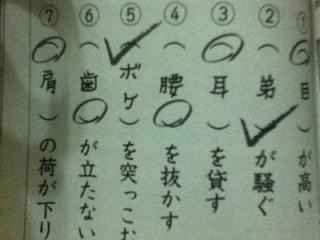 ①（目）が高い
②（弟）が騒ぐ
③（耳）を貸す
④（腰）を抜かす
⑤（ボケ）を突っこむ
⑥（歯）が立たない
⑦（肩）の荷が下り